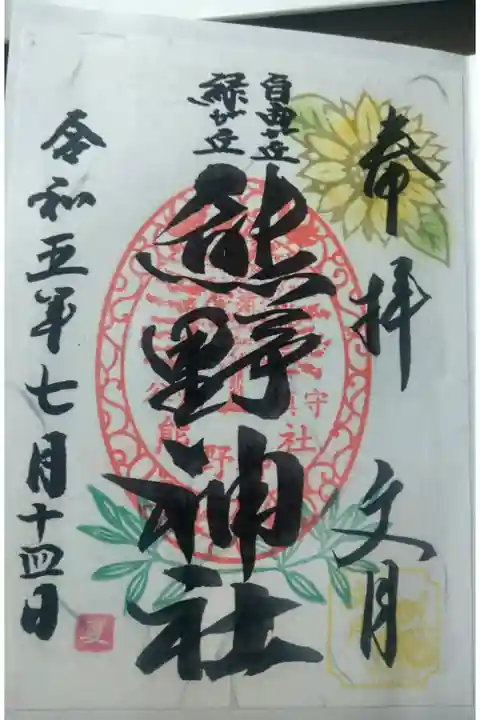 奉拝
文月
自由ヶ丘
緑が丘
熊野神社
令和五年七月十四日
夏